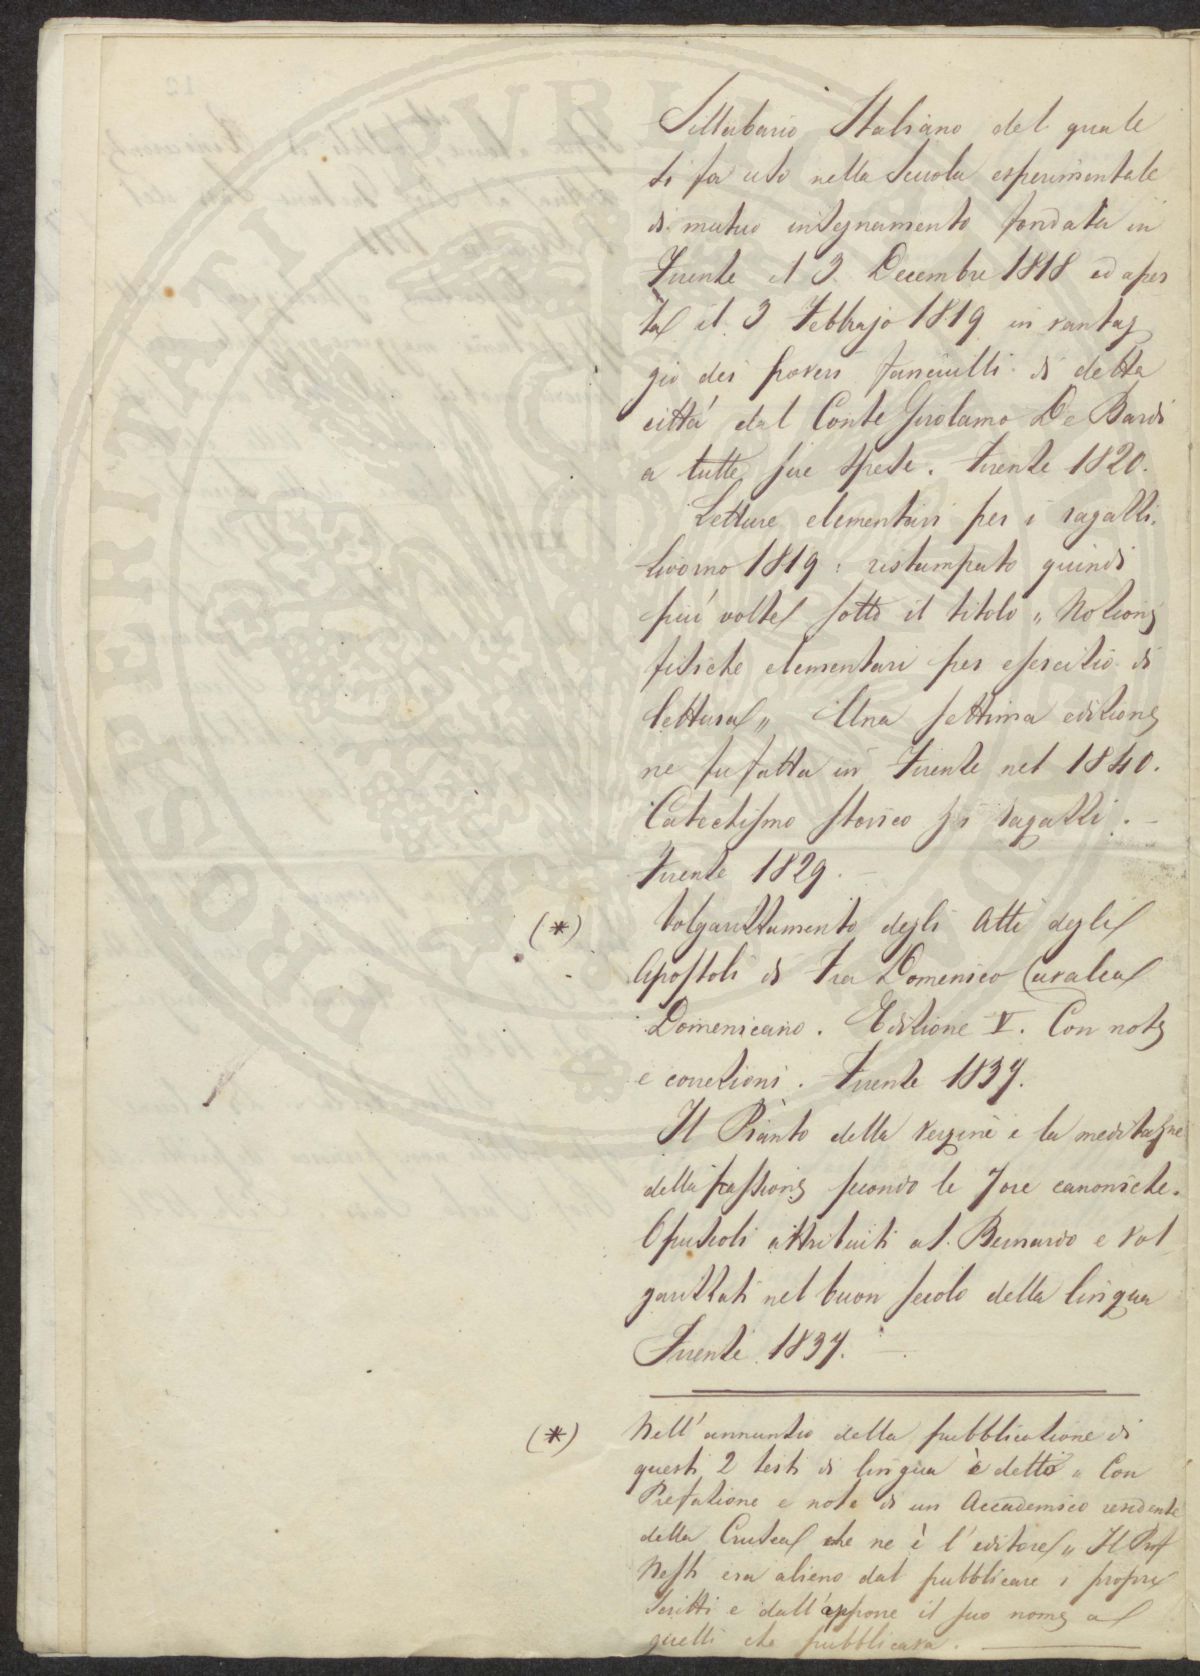 Sillabario Italiano del quale
si fa uso nella Scuola esperimentale
di mutuo insegnamento fondata in
Firenze il 3 Decembre 1818 ed aper
ta il 3 Febbrajo 1819 in vantag
gio dei poveri fanciulli di detta
città dal Conte Girolamo De Bardi
a tutte sue spese. Firenze 1820.
Letture elementari per i ragazzi.
Livorno 1819: ristampato quindi
più volte sotto il titolo „ Nozioni
fisiche elementari per esercizio di
lettura „ Una settima edizione
ne fu fatta in Firenze nel 1840.
Catechismo storico pei ragazzi. –
Firenze 1829. –
(*) Volgarizzamento degli Atti degli
Apostoli di Fra Domenico Cavalca
Domenicano. Edizione V. Con note
e correzioni. Firenze 1837.
Il Pianto della Vergine e la meditazne
della passione secondo le 7 ore canoniche.
Opuscoli attribuiti a S. Bernardo e vol
garizzati nel buon secolo della lingua
Firenze 1837. –
(*) Nell'annunzio della pubblicazione di
questi 2 testi di lingua è detto „ Con
Prefazione e note di un Accademico residente
della Crusca che ne è l'editore „ Il Prof
Nesti era alieno dal pubblicare i propri
scritti e dall'apporre il suo nome a
quelli che pubblicava.